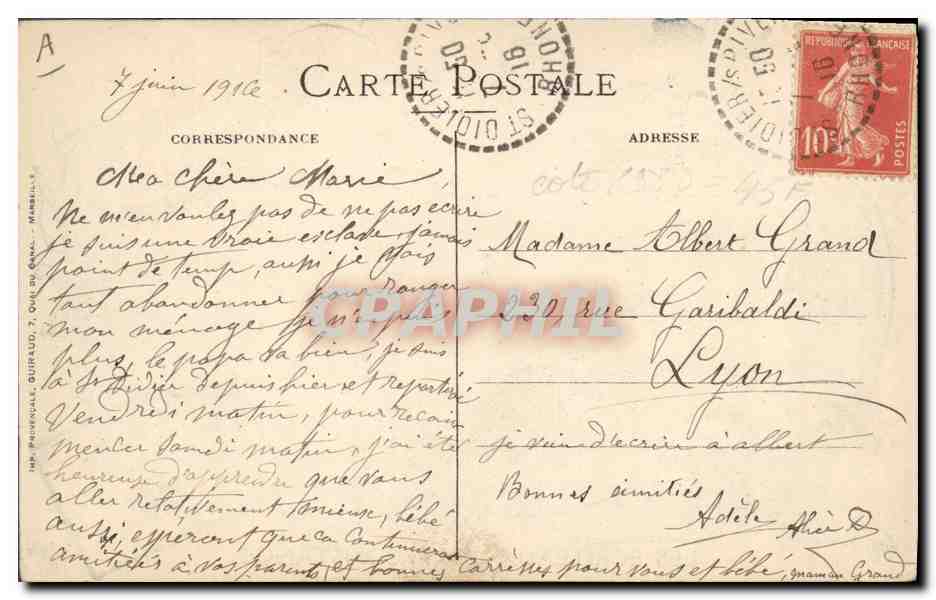 A
7 juin 1916
CARTE POSTALE
ST DIDIER /S RIVERIE RHONE
16
50
RÉPUBLIQUE FRANÇAISE
10c
POSTES
CORRESPONDANCE
ADRESSE
Ma chère Marie,
Ne m'en voulez pas de ne pas ecrire
je suis une vraie esclave, jamais
point de temp, aussi je vais
tout abandonner pour ranger
mon ménage je n'y puis
plus, le papa va bien, je suis
à St Didier depuis hier et repartiré
Vendredi matin, pour recom
mencer Samdi matin, j'ai été
heureuse d'apprendre que vous
aller relativement mieux, bébé
aussi, esperont que ca continuera
amitiés à vos parents, et bonnes carresses pour vous et bébé, maman Grand
cote
45 F
Madame Albert Grand
230, rue Garibaldi
Lyon
je vien d'ecrire à albert
Bonnes amitiés
Adèle Alice
IMP. PROVENÇALE, GUIRAUD, 7, QUAI DU CANAL - MARSEILLE
CPAPHIL